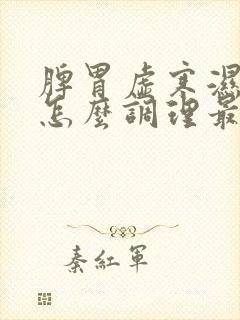 脾胃虛寒濕
怎麼調理最
秦紅軍